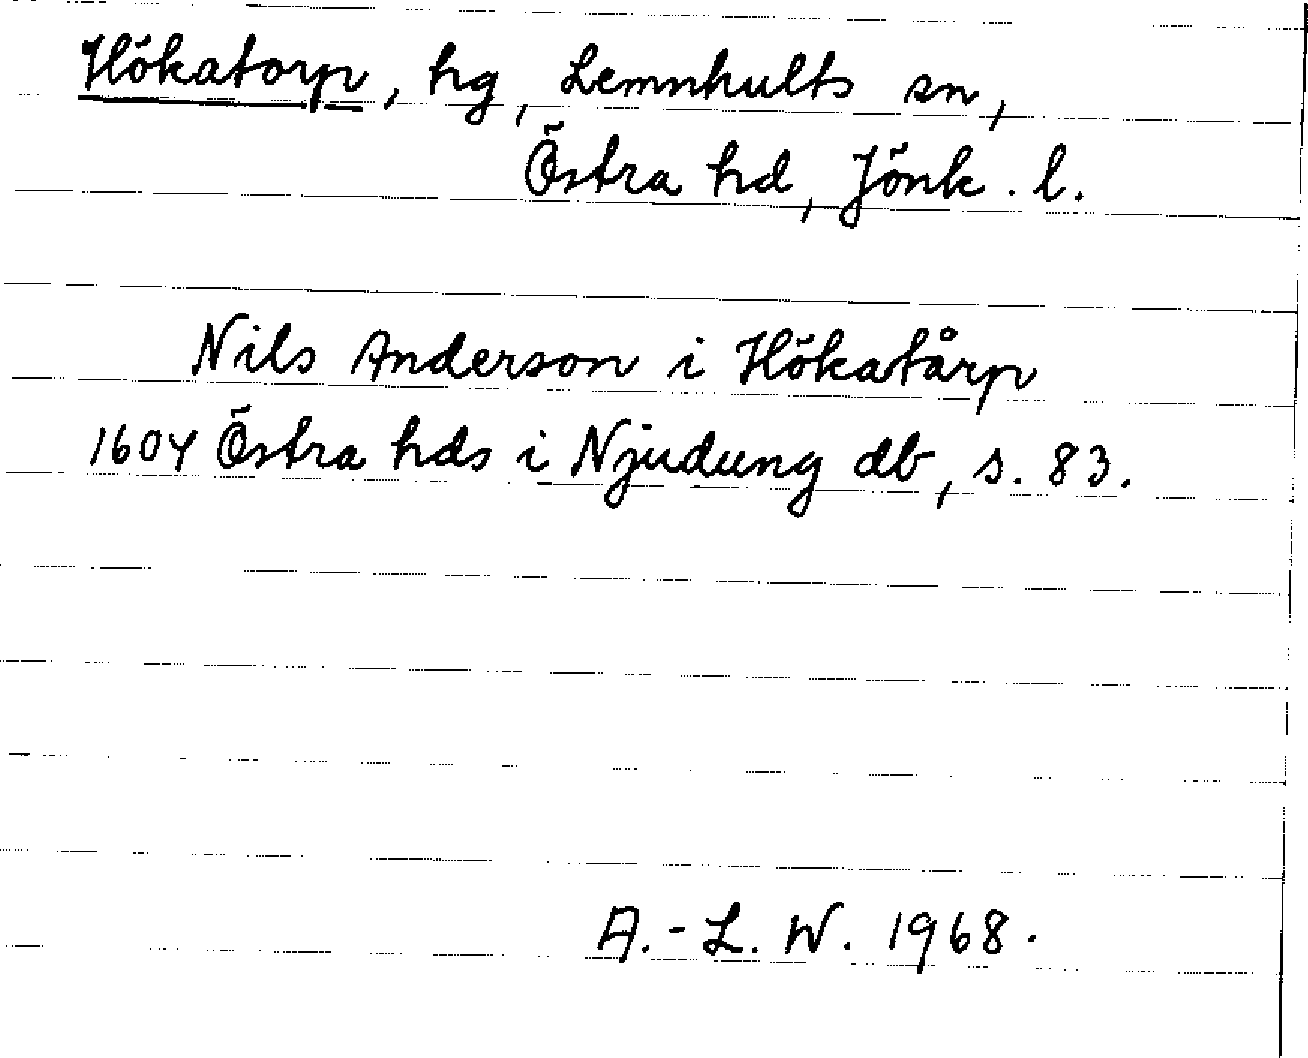 Hökatorp, hg, Lemnhults sn,
Östra hd, Jönk. l.
Nils Anderson i Hökatårp
1604 Östra hds i Njudung db, s. 83.
A.-L. W. 1968.